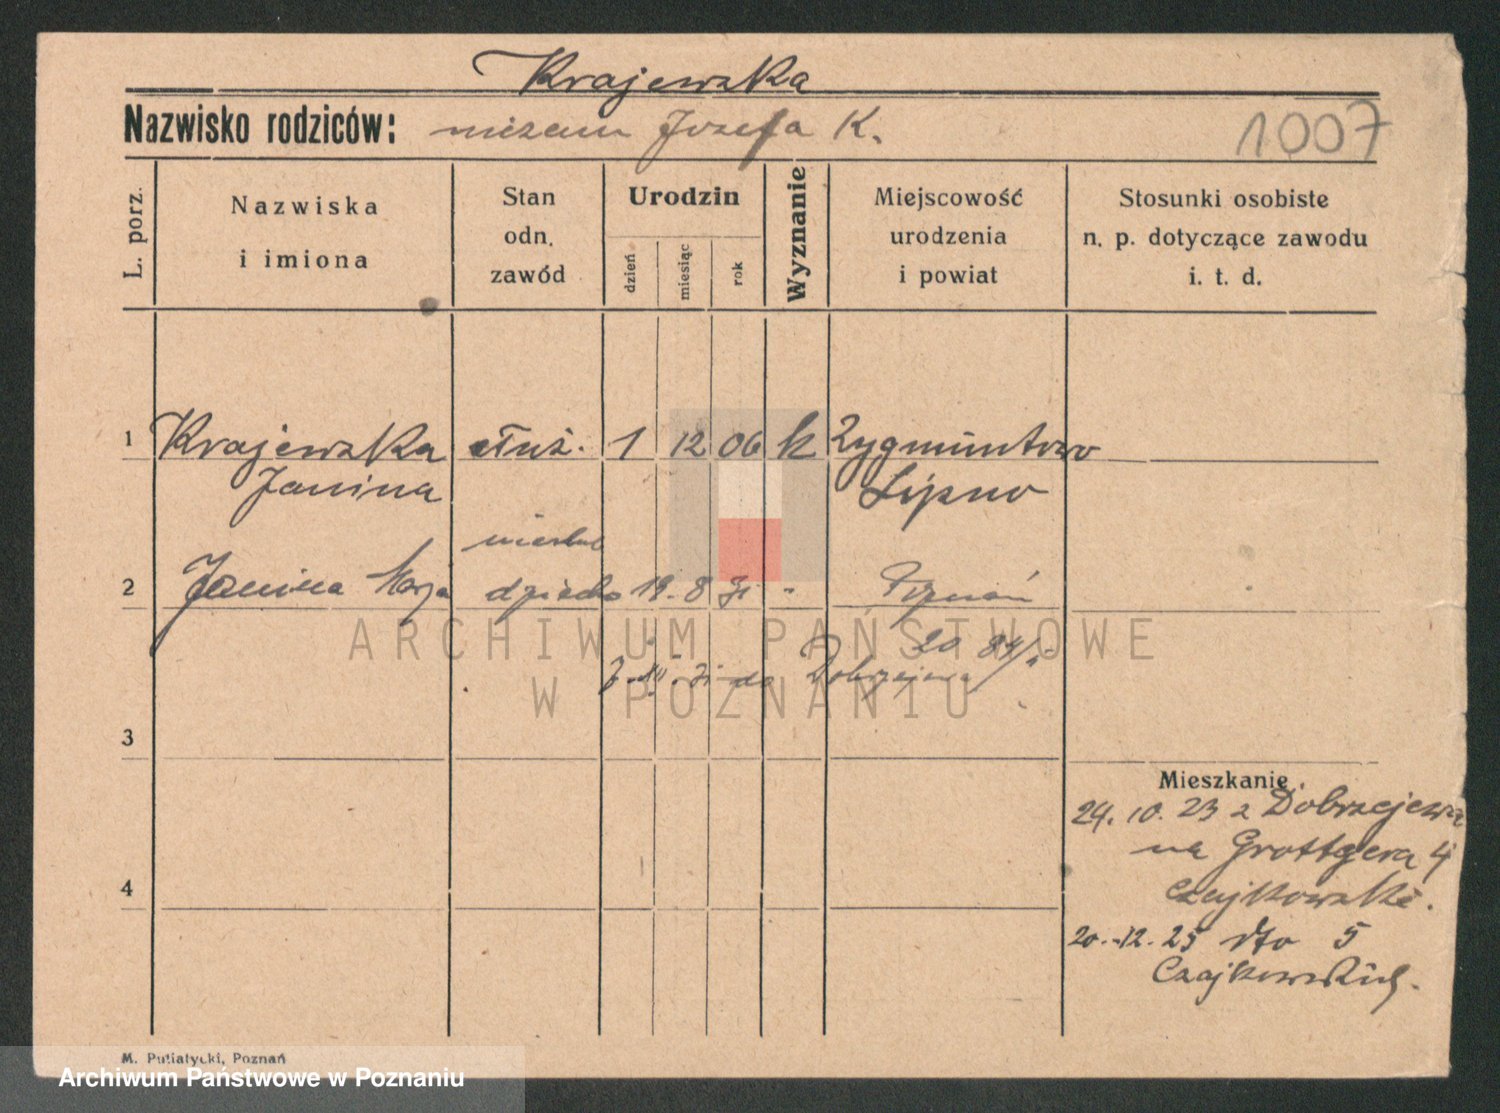 Krajewska
Nazwisko rodziców: Józefa K.
1007
L. porz.
Nazwiska
i imiona
Stan
odn.
zawód
Urodzin
dzień
miesiąc
rok
Wyznanie
Miejscowość
urodzenia
i powiat
Stosunki osobiste
n. p. dotyczące zawodu
i. t. d.
1 Krajewska służ. 1 12 06 k Zygmuntowo
Janina Lipno
2 Janina dziecko 19. 8 - Poznań
do Dobrzejewa
3
Mieszkanie
24. 10. 23 z Dobrzejewa
na Grottgera 4
Czajkowski.
4
20.-12. 25 dto 5
Czajkowskich.
M. Putiatycki, Poznań
ARCHIWUM PAŃSTWOWE
W POZNANIU
Archiwum Państwowe w Poznaniu